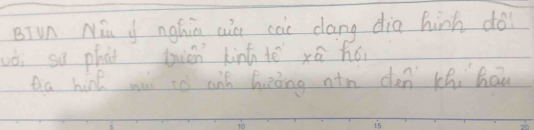 BTVN Nêu ý nghĩa của các dạng địa hình đối
với sự phát triển kinh tế xã hội
Địa hình núi có ảnh hưởng ntn đến khí hậu
5 10 15 20